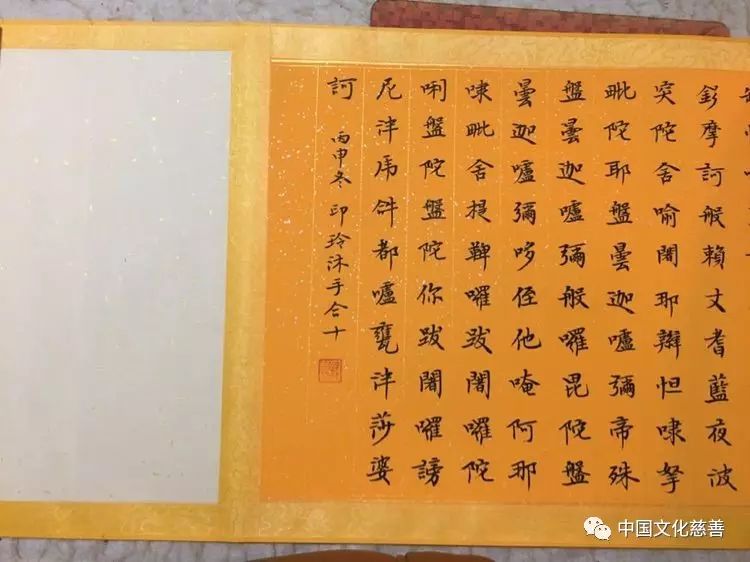 釤摩訶般賴丈耆藍夜波
突陀舍喻闍那辮怛唻拏
毗陀耶盤曇迦嚧彌帝殊
盤曇迦嚧彌般囉毘陀盤
曇迦嚧彌哆侄他唵阿那
唻毗舍提鞞囉跋闍囉陀
唎盤陀盤陀你跋闍囉謗
尼泮虎𤙖都嚧甕泮莎婆
訶
丙申冬印玲沐手合十
中国文化慈善